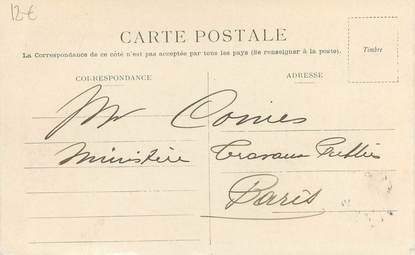 12-€
CARTE POSTALE
La Correspondance de ce côté n'est pas acceptée par tous les pays (Se renseigner à la poste).
Timbre
CORRESPONDANCE
ADRESSE
Mr
Ministère Travaux Publics
Paris